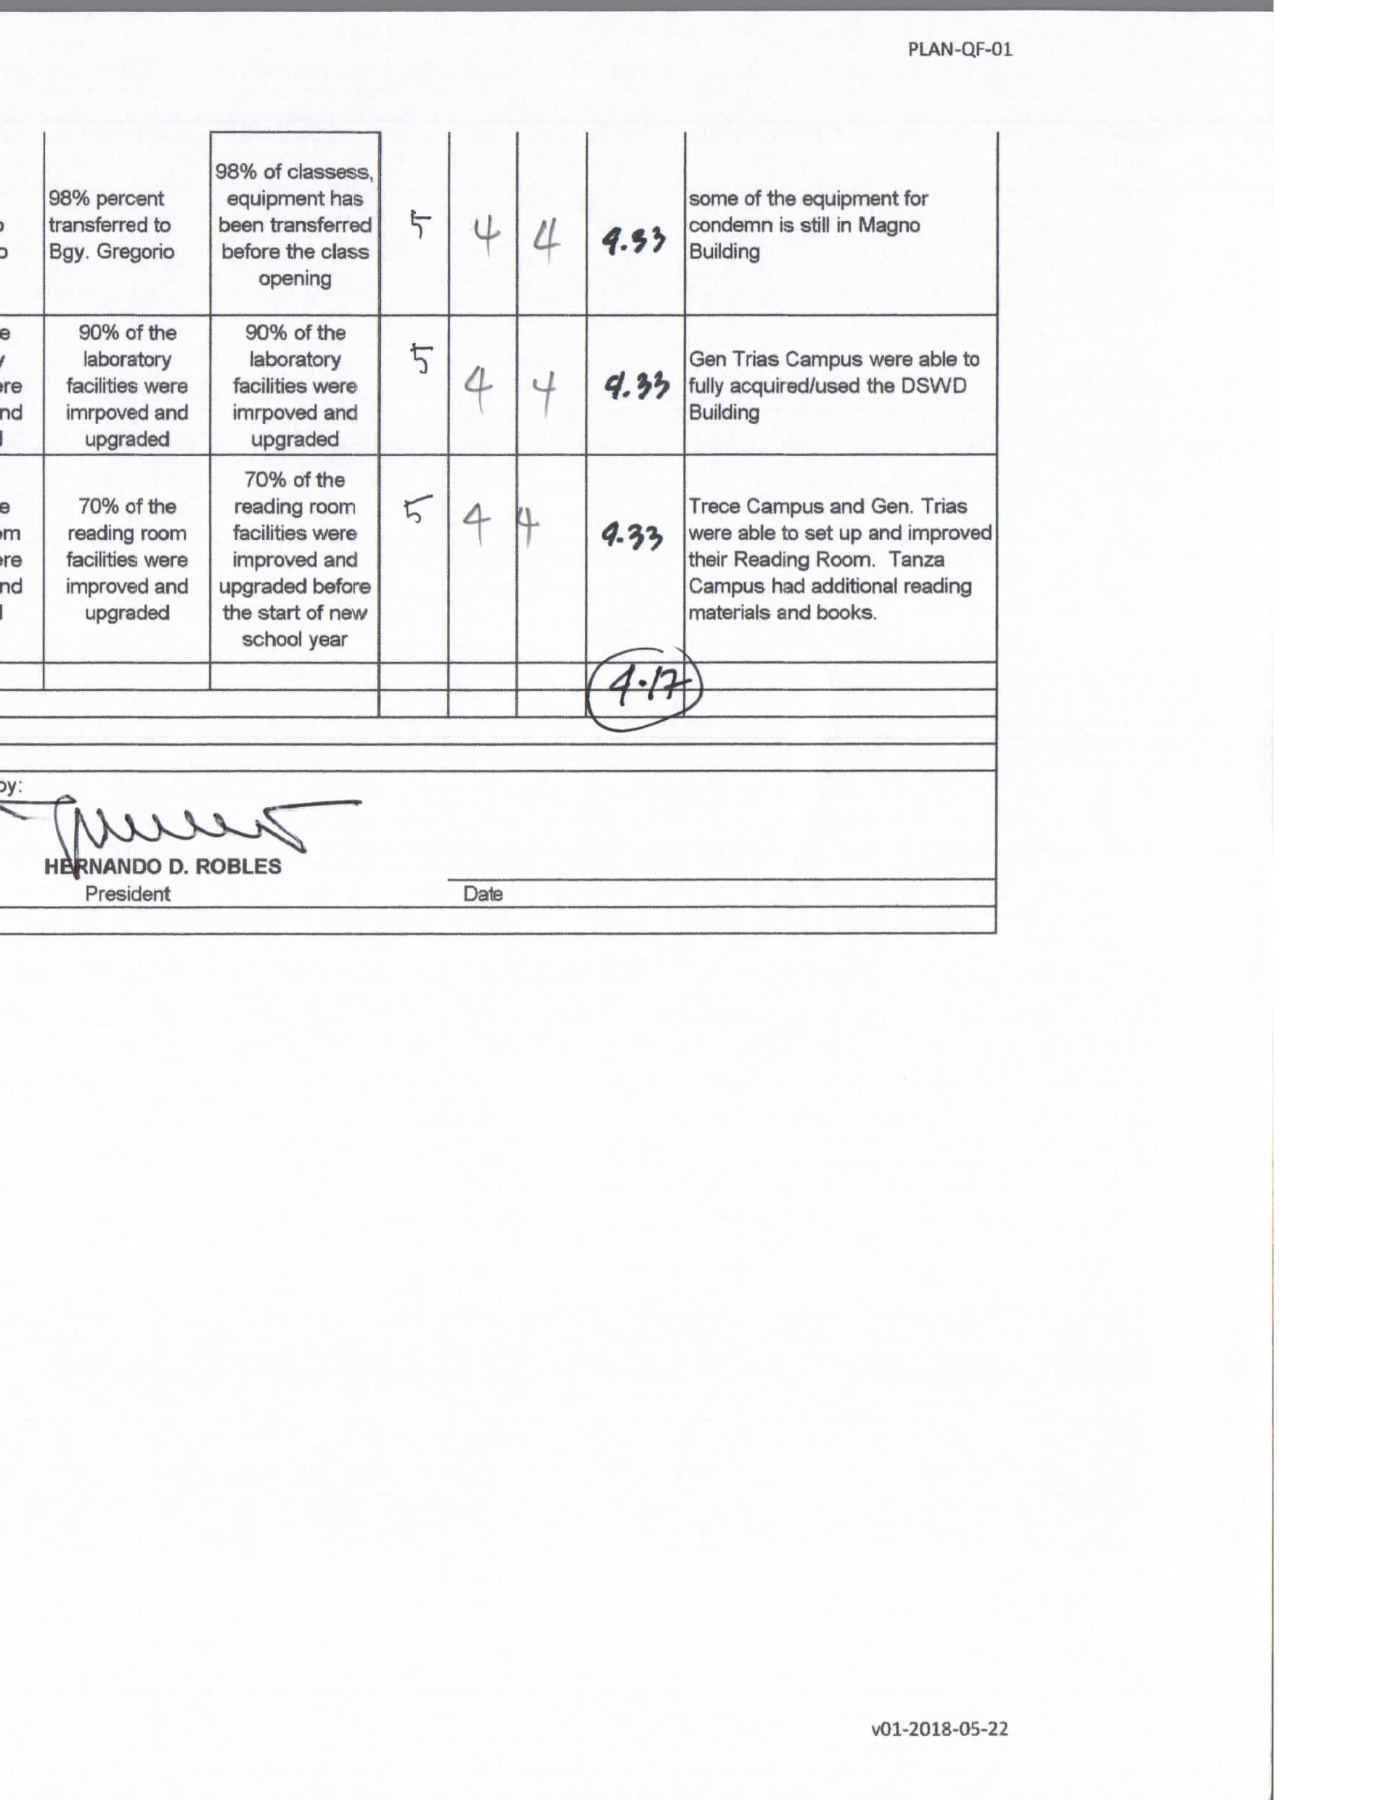 PLAN-QF-01
98% percent
transferred to
Bgy. Gregorio
98% of classess,
equipment has
been transferred
before the class
opening
5 4 4 4.33
some of the equipment for
condemn is still in Magno
Building
90% of the
laboratory
facilities were
imrpoved and
upgraded
90% of the
laboratory
facilities were
imrpoved and
upgraded
5 4 4 4.33
Gen Trias Campus were able to
fully acquired/used the DSWD
Building
70% of the
reading room
facilities were
improved and
upgraded
70% of the
reading room
facilities were
improved and
upgraded before
the start of new
school year
5 4 4 4.33
Trece Campus and Gen. Trias
were able to set up and improved
their Reading Room. Tanza
Campus had additional reading
materials and books.
4.17
by:
HERNANDO D. ROBLES
President
Date
v01-2018-05-22